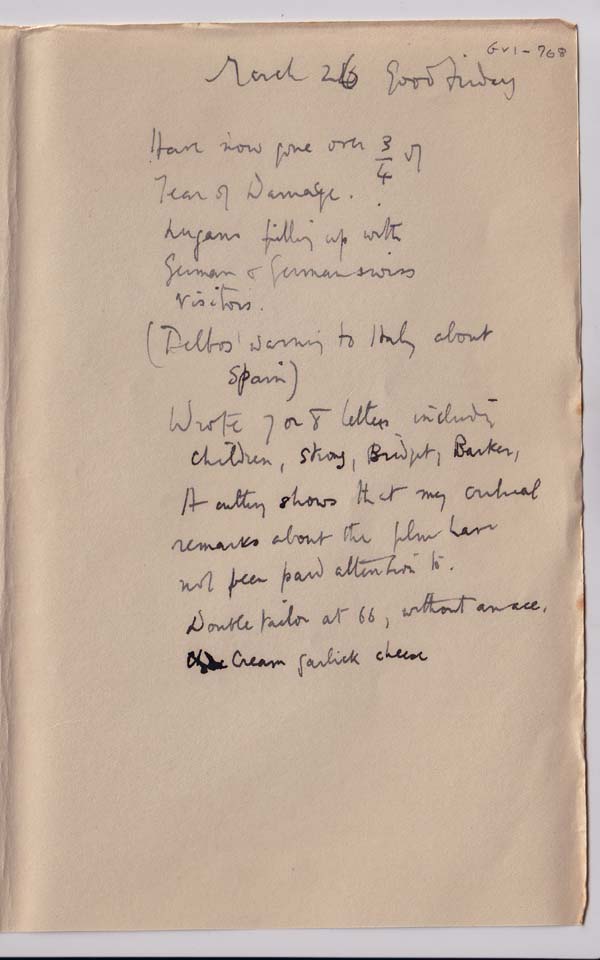 GV1-768
March 26 Good Friday
Have now gone over 3/4 of
Tear of Damage.
Lugano filling up with
German & German swiss
visitors.
(Delbos' warning to Italy about
Spain)
Wrote 7 or 8 letters including
children, Strong, Bridget, Barker,
A cutting shows that my critical
remarks about the film have
not been paid attention to.
Double tailor at 66, without an ace.
Cream garlick cheese